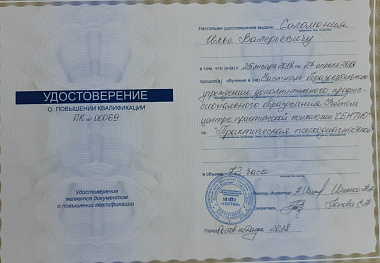 УДОСТОВЕРЕНИЕ
О ПОВЫШЕНИИ КВАЛИФИКАЦИИ
ПК № 00069
Удостоверение
является документом
о повышении квалификации
Настоящее удостоверение выдано Саломатина
Илье Валерьевичу
в том, что он(а) с 25 января 2018 по 27 апреля 2018
прошел(а) обучение в (на) Частном образовательном
учреждении дополнительного профес-
сионального образования Учебном
центре практической психологии "ГЕНТИО"
по "Практическая психодиагностика"
в объеме 72 часа
Секретарь
Город Ростов-на-Дону 2018